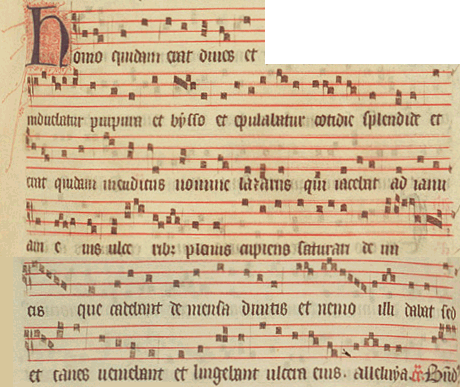 Homo quidam erat diues et
induebatur purpura et bysso et epulabatur cotidie splendide et
erat quidam mendicus nomine lazarus qui iacebat ad ianu
am e ius ulce rib; plenus cupiens saturari de mi
cis que cadebant de mensa diuitis et nemo illi dabat sed
et canes ueniebant et lingebant ulcera eius. alleluya.